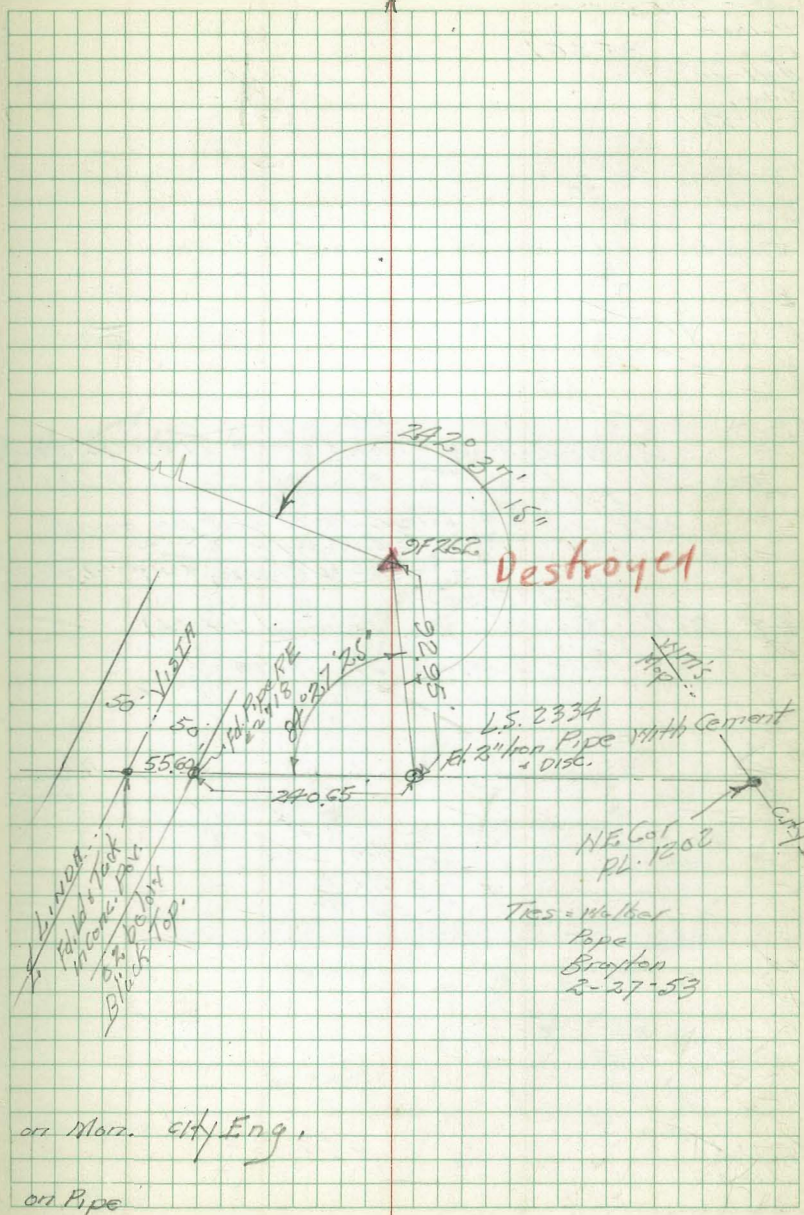 242° 37' 15"
9F262
Destroyed
92.95
VISTA
50'
50'
Fd. Pipe RE
27'25"
55.60
240.65
L.S. 2334
Fd. 2" Iron Pipe With Cement
+ Disc.
Wm's
Map
City
NE Cor
P.L. 1202
LINDA
Fd. Ld & Tack
in Conc. Pav.
below
Black Top.
Ties = Walker
Pope
Brayton
2-27-53
on Mon. City Eng.
on Pipe